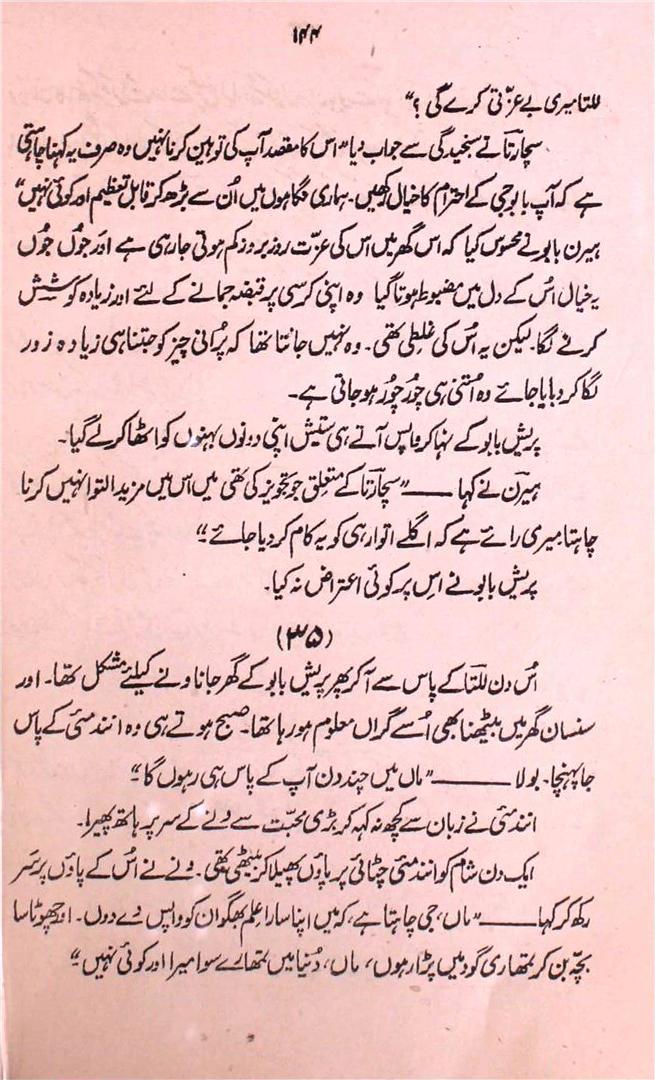 ۱۴۴
للتا میری بے عزّتی کرے گی ؟"
سچارتا نے سنجیدگی سے جواب دیا "اس کا مقصد آپ کی توہین کرنا نہیں وہ صرف یہ کہنا چاہتی
ہے کہ آپ بابوجی کے احترام کا خیال رکھیں۔ ہماری نگاہوں میں اُن سے بڑھ کر قابل تعظیم اور کوئی نہیں"
ہیرن بابو نے محسوس کیا کہ اس گھر میں اس کی عزّت روز بروز کم ہوتی جا رہی ہے اور جُوں جُوں
یہ خیال اُس کے دل میں مضبوط ہوتا گیا وہ اپنی کرسی پر قبضہ جمانے کے لئے اور زیادہ کوشش
کرنے لگا۔ لیکن یہ اُس کی غلطی تھی۔ وہ نہیں جانتا تھا کہ پُرانی چیز کو جتنا ہی زیادہ زور
لگا کر دبایا جائے وہ اُتنی ہی چُور چُور ہو جاتی ہے۔
پریش بابو کے نہا کر واپس آتے ہی ستیش اپنی دونوں بہنوں کو اٹھا کر لے گیا۔
ہیرن نے کہا ــــــ "سچارتا کے متعلق جو تجویز کی تھی میں اس میں مزید التوا نہیں کرنا
چاہتا میری رائے ہے کہ اگلے اتوار ہی کو یہ کام کر دیا جائے"
پریش بابو نے اِس پر کوئی اعتراض نہ کیا۔
(۳۵)
اُس دن للتا کے پاس سے آ کر پھر پریش بابو کے گھر جانا ونے کیلئے مشکل تھا۔ اور
سنسان گھر میں بیٹھنا بھی اُسے گراں معلوم ہو رہا تھا۔ صبح ہوتے ہی وہ انند مئی کے پاس
جا پہنچا۔ بولا ــــــ "ماں میں چند دن آپ کے پاس ہی رہوں گا"
انند مئی نے زبان سے کچھ نہ کہہ کر بڑی محبّت سے ونے کے سر پر ہاتھ پھیرا۔
ایک دن شام کو انند مئی چٹائی پر پاؤں پھیلا کر بیٹھی تھی۔ ونے نے اُس کے پاؤں پر سَر
رکھ کر کہا ــــــ "ماں، جی چاہتا ہے، کہ میں اپنا سارا علم بھگوان کو واپس دے دوں۔ اور چھوٹا سا
بچّہ بن کر تمھاری گود میں پڑا رہوں، ماں، دُنیا میں تمھارے سوا میرا اور کوئی نہیں"